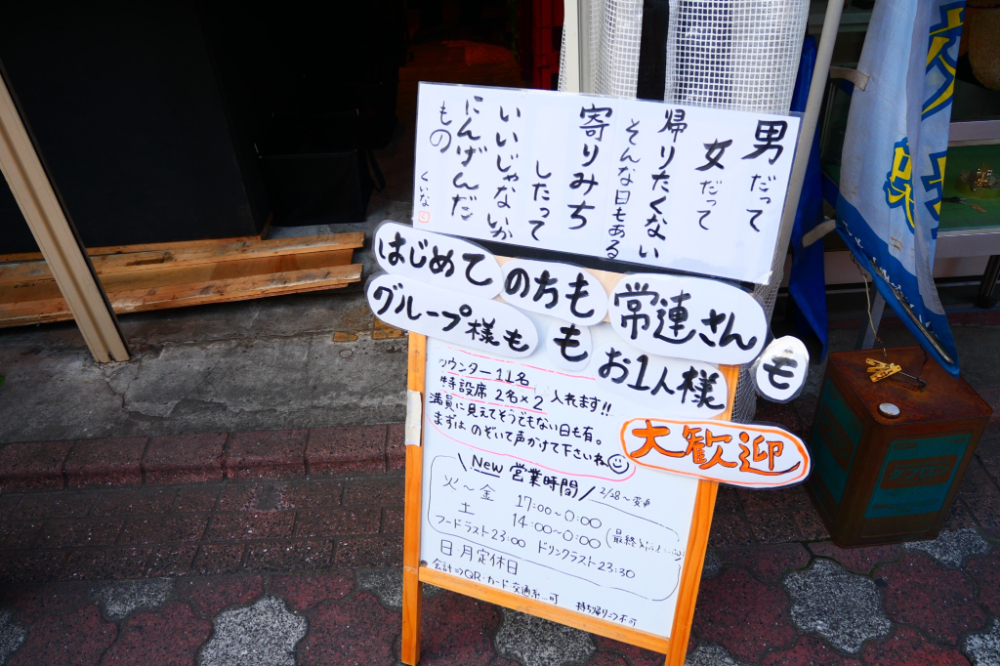 男だって
女だって
帰りたくない
そんな日もある
寄りみち
したって
いいじゃないか
にんげんだ
もの
くいな
はじめてのちもも
常連さんも
グループ様も
お1人様も
カウンター11名
特設席 2名×2 入れます!!
満員に見えてそうでもない日も有。
まずは のぞいて声かけて下さいね
大歓迎
New 営業時間
2/28〜変更
火〜金 17:00〜0:00
土 14:00〜0:00
フードラスト23:00 ドリンクラスト23:30
日月定休日
会計はQR・カード 交通系...可